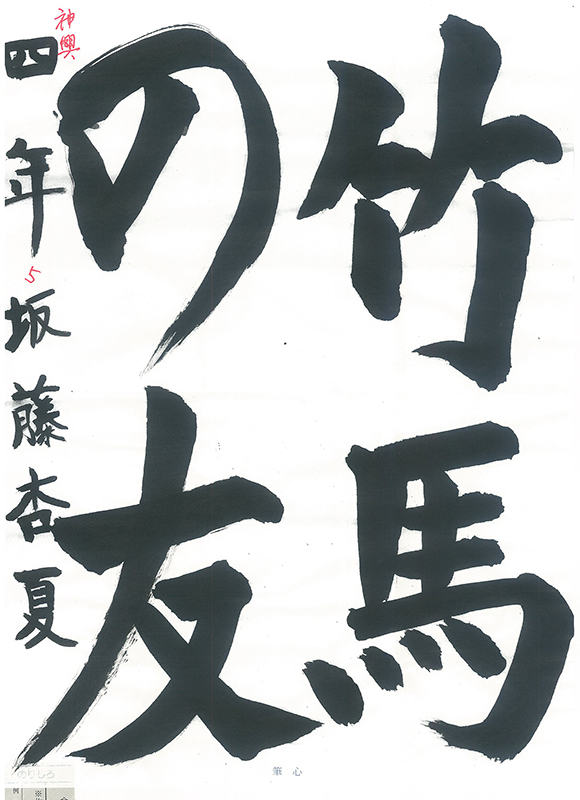 竹馬
の友
神興
四年 坂藤杏夏
5
筆心
のりしろ
例
※